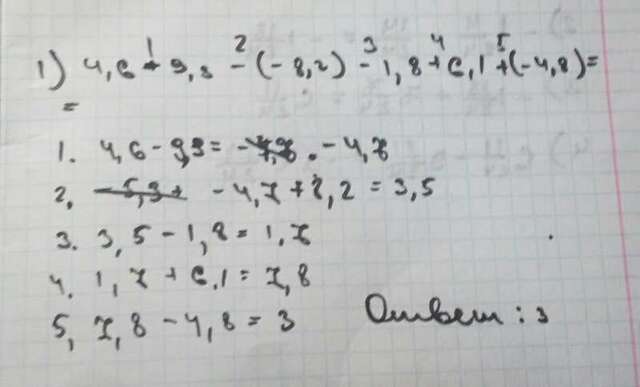 1) 4,6 - 9,3 - (-8,2) - 1,8 + 6,1 + (-4,8) =
1 2 3 4 5
=
1. 4,6 - 9,3 = -4,7
2, -4,7 + 8,2 = 3,5
3. 3,5 - 1,8 = 1,7
4. 1,7 + 6,1 = 7,8
5, 7,8 - 4,8 = 3 Ответ: 3